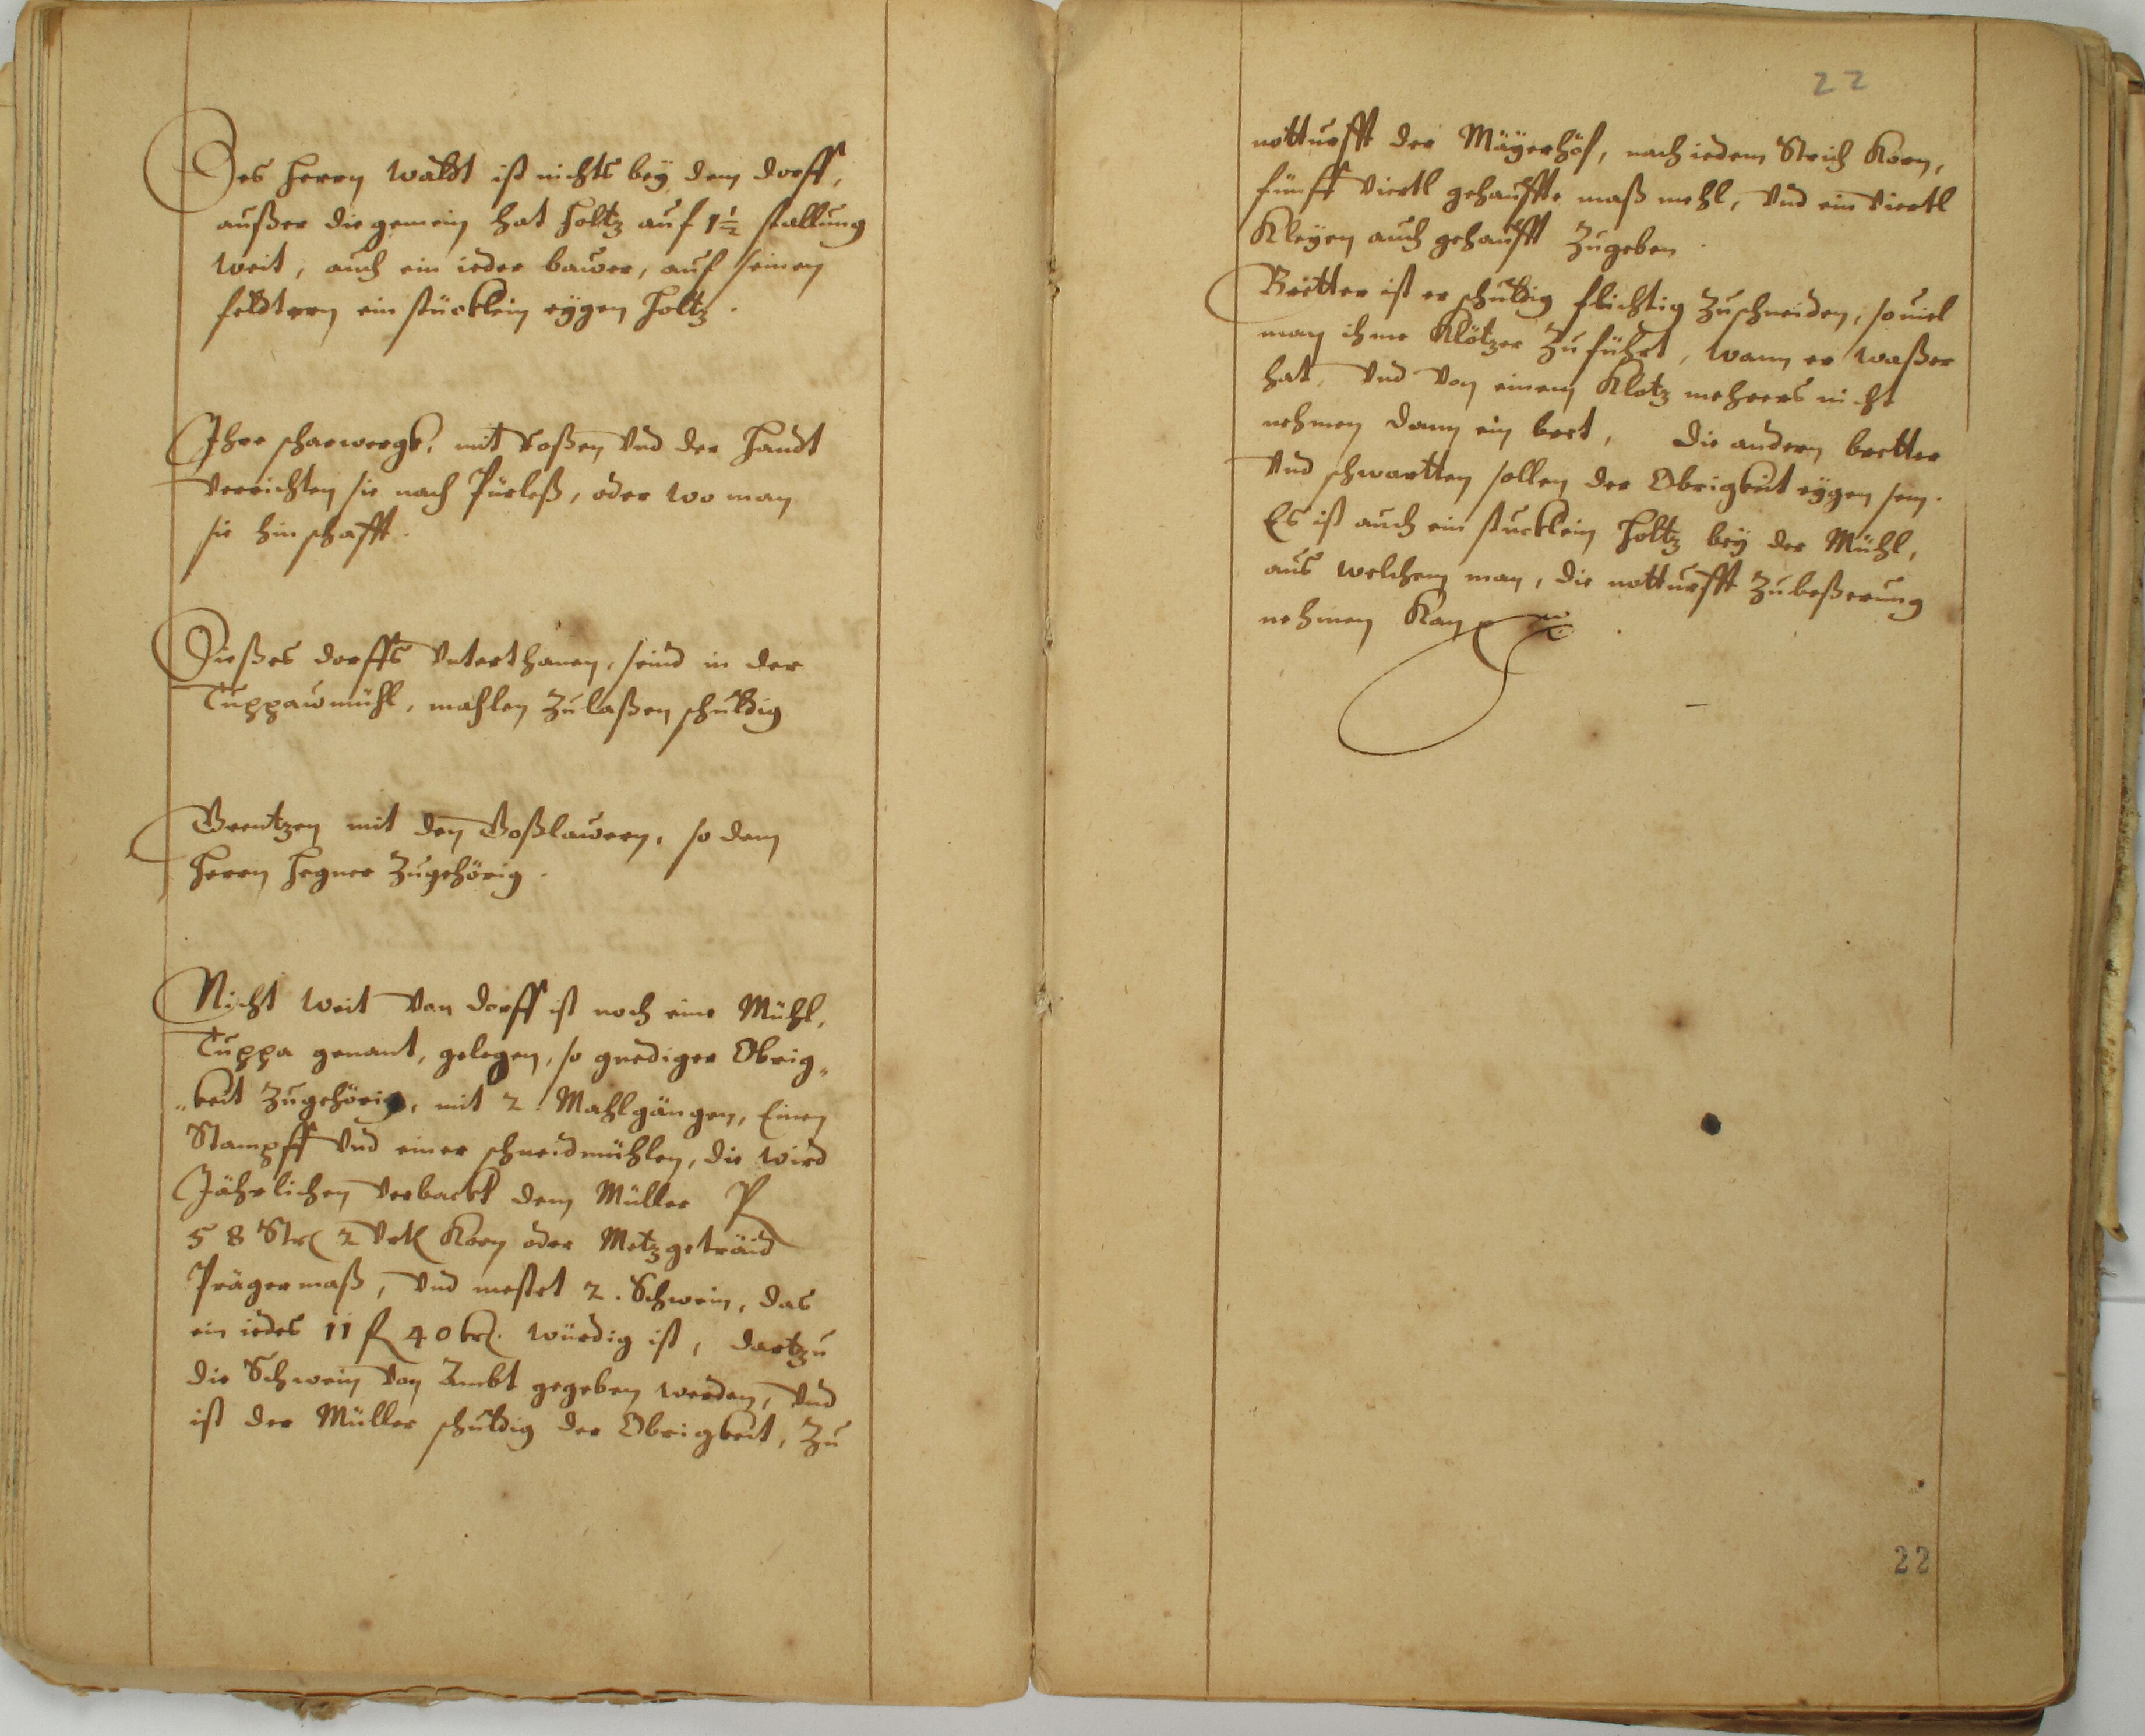 Des Herrn Waldt ist nichts bey dem dorff,
außer die gemein hat Holtz auf 1½ stallung
weit, auch ein ieder bawer, auf seinen
feldtern ein stücklein eygen Holtz.
Ihre scharwergk, mit Roßen vnd der Handt
verrichten sie nach Pürleß, oder wo man
sie hin schafft.
Dießes dorffs Vnterthanen, seind in der
Tuppawmühl, mahlen zulaßen schuldig
Grentzen mit den Goßlawern, so dem
Herrn Hegner zugehörig.
Nicht weit von dorff ist noch eine Mühl,
Tuppa genant, gelegen, so gnediger Obrig„
„keit zugehörig, mit 2. Mahlgängen, Einen
Stampff vnd einer schneidmühlen, die wird
Jährlichen verlackt dem Müller P
58 Str 2 Vrtl Korn oder Metzgeträid
Präger maß, vnd mestet 2. Schwein, das
ein iedes 11 fl 40 kr. würdig ist, dartzu
die Schwein von Ambt gegeben werden, vnd
ist der Müller schuldig der Obrigkeit, zu
22
notturfft der Mäyerhöf, nach iedem Strich Korn,
fünff viertl gehauffte maß mehl, vnd ein viertl
Kleyen auch gehaufft zugeben.
Bretter ist er schuldig flichtig zuschneiden, souiel
man ihme Klötzer zuführt, wann er waßer
hat, vnd von einem Klotz mehrers nicht
nehmen dann ein bret, die andern bretter
vnd schwartten sollen der Obrigkeit eygen sein.
Es ist auch ein stucklein Holtz bey der Mühl,
aus welchem man, die notturfft zubeßerung
nehmen Kan
22